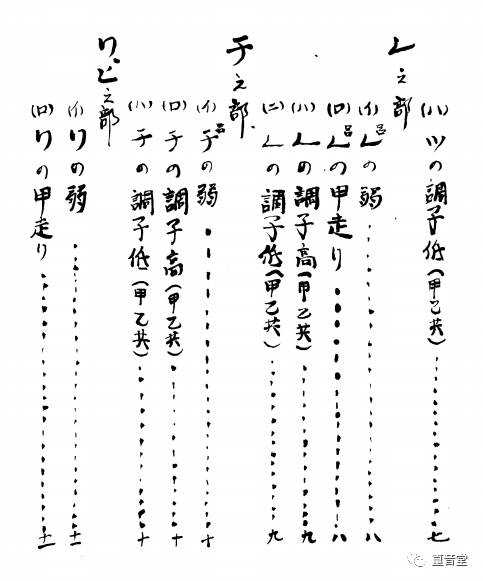 (ハ) ツの調子低(甲乙共)……七
レ之部
(イ) レ呂の弱……八
(ロ) レ呂の甲走り……八
(ハ) レの調子高(甲乙共)……九
(ニ) レの調子低(甲乙共)……九
チ之部
(イ) チ呂の弱……十
(ロ) チの調子高(甲乙共)……十
(ハ) チの調子低(甲乙共)……十
リ、ヒ之部
(イ) リの弱……十一
(ロ) リの甲走り……十一
直音堂